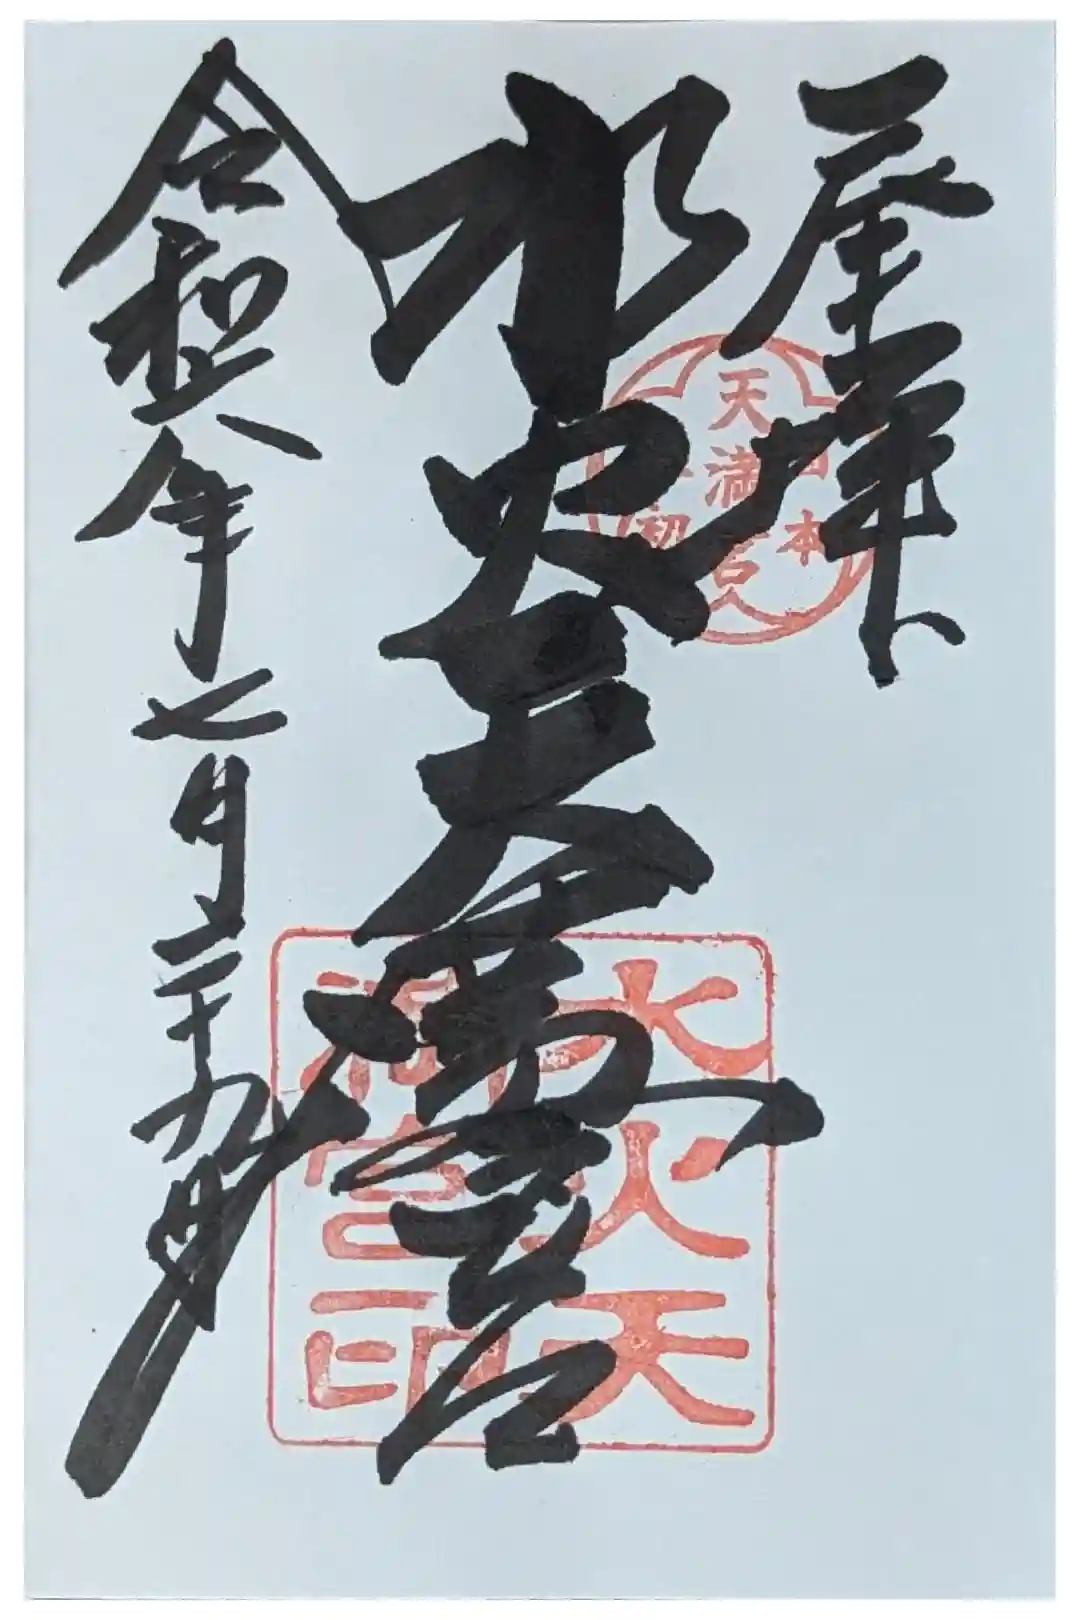 奉拝
日本
天満宮
最初
水火天満宮
水火天
満宮印
令和六年七月二十九日